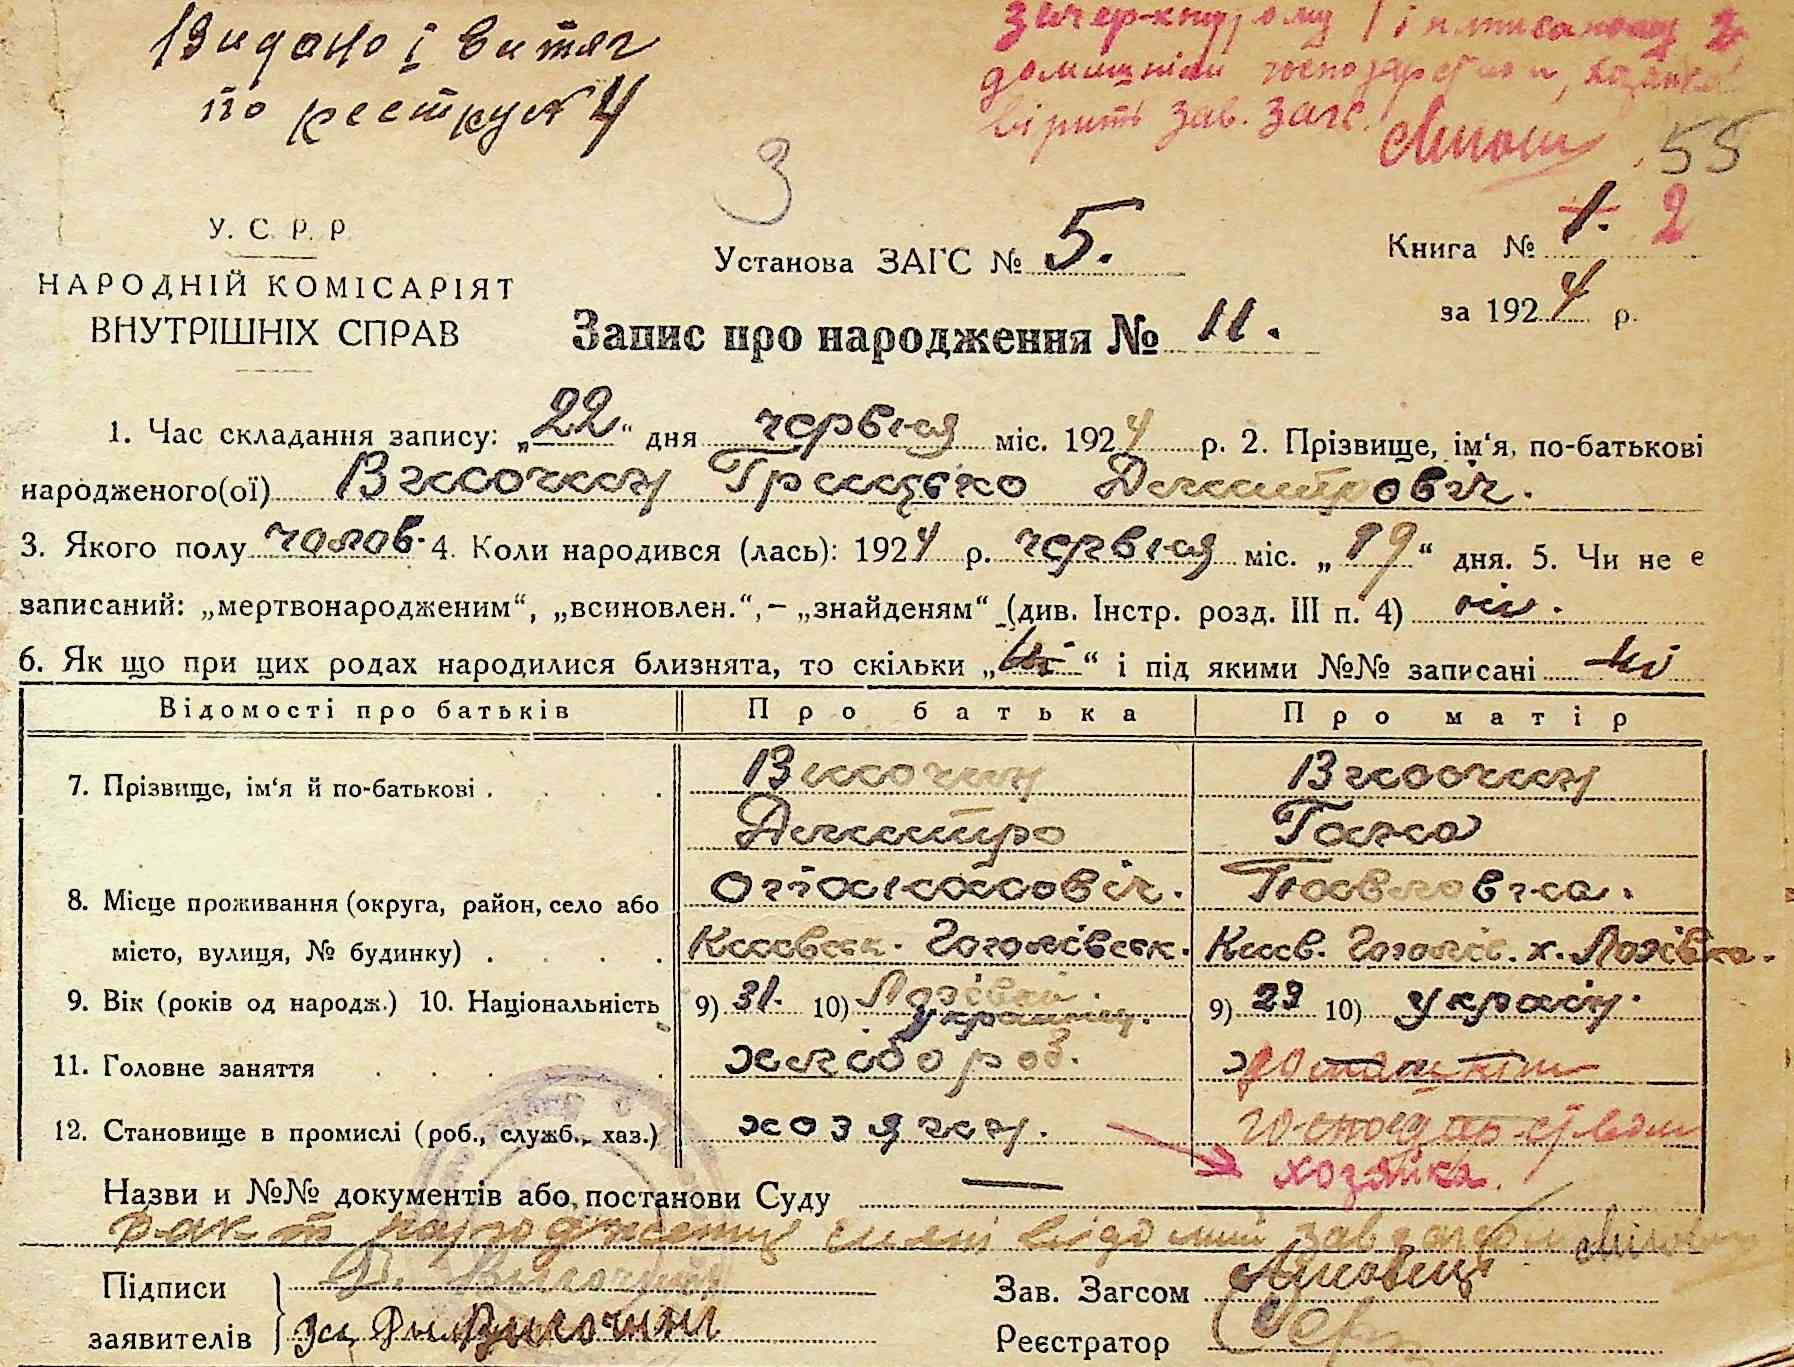 Видано і витяг
по реєстру № 4
домашнім господарством, хазяйка
вірить зав. загс.
55
3
У. С. Р. Р.
НАРОДНІЙ КОМІСАРІЯТ
ВНУТРІШНІХ СПРАВ
Установа ЗАГС № 5.
Книга № 1. 2
за 1924 р.
Запис про народження № 11.
1. Час складання запису: „22“ дня червня міс. 1924 р. 2. Прізвище, ім‘я, по-батькові
народженого(ої) Височин Грицько Дмитрович.
3. Якого полу чолов. 4. Коли народився (лась): 1924 р. червня міс. „19“ дня. 5. Чи не є
записаний: „мертвонародженим“, „всиновлен.“, – „знайденям“ (див. Інстр. розд. III п. 4) ні.
6. Як що при цих родах народилися близнята, то скільки „ні“ і під якими №№ записані ні
Відомості про батьків Про батька Про матір
7. Прізвище, ім‘я й по-батькові . . . . Височин Височин
Дмитро Ганна
8. Місце проживання (округа, район, село або Опанасович. Павловна.
місто, вулиця, № будинку) . . . . Київськ. Гоголівськ. Київ. Гоголів. х. Лозівка.
9. Вік (років од народж.) 10. Національність 9) 31. 10) Лозівка. українец. 9) 29 10) україн.
11. Головне заняття . . . . хлібороб.
12. Становище в промислі (роб., служб., хаз.) хозяин. господарством
хозяйка.
Назви и №№ документів або постанови Суду —
факт народження мені відомий зав загсом
Підписи Д. Височин Зав. Загсом
заявителів за Реєстратор